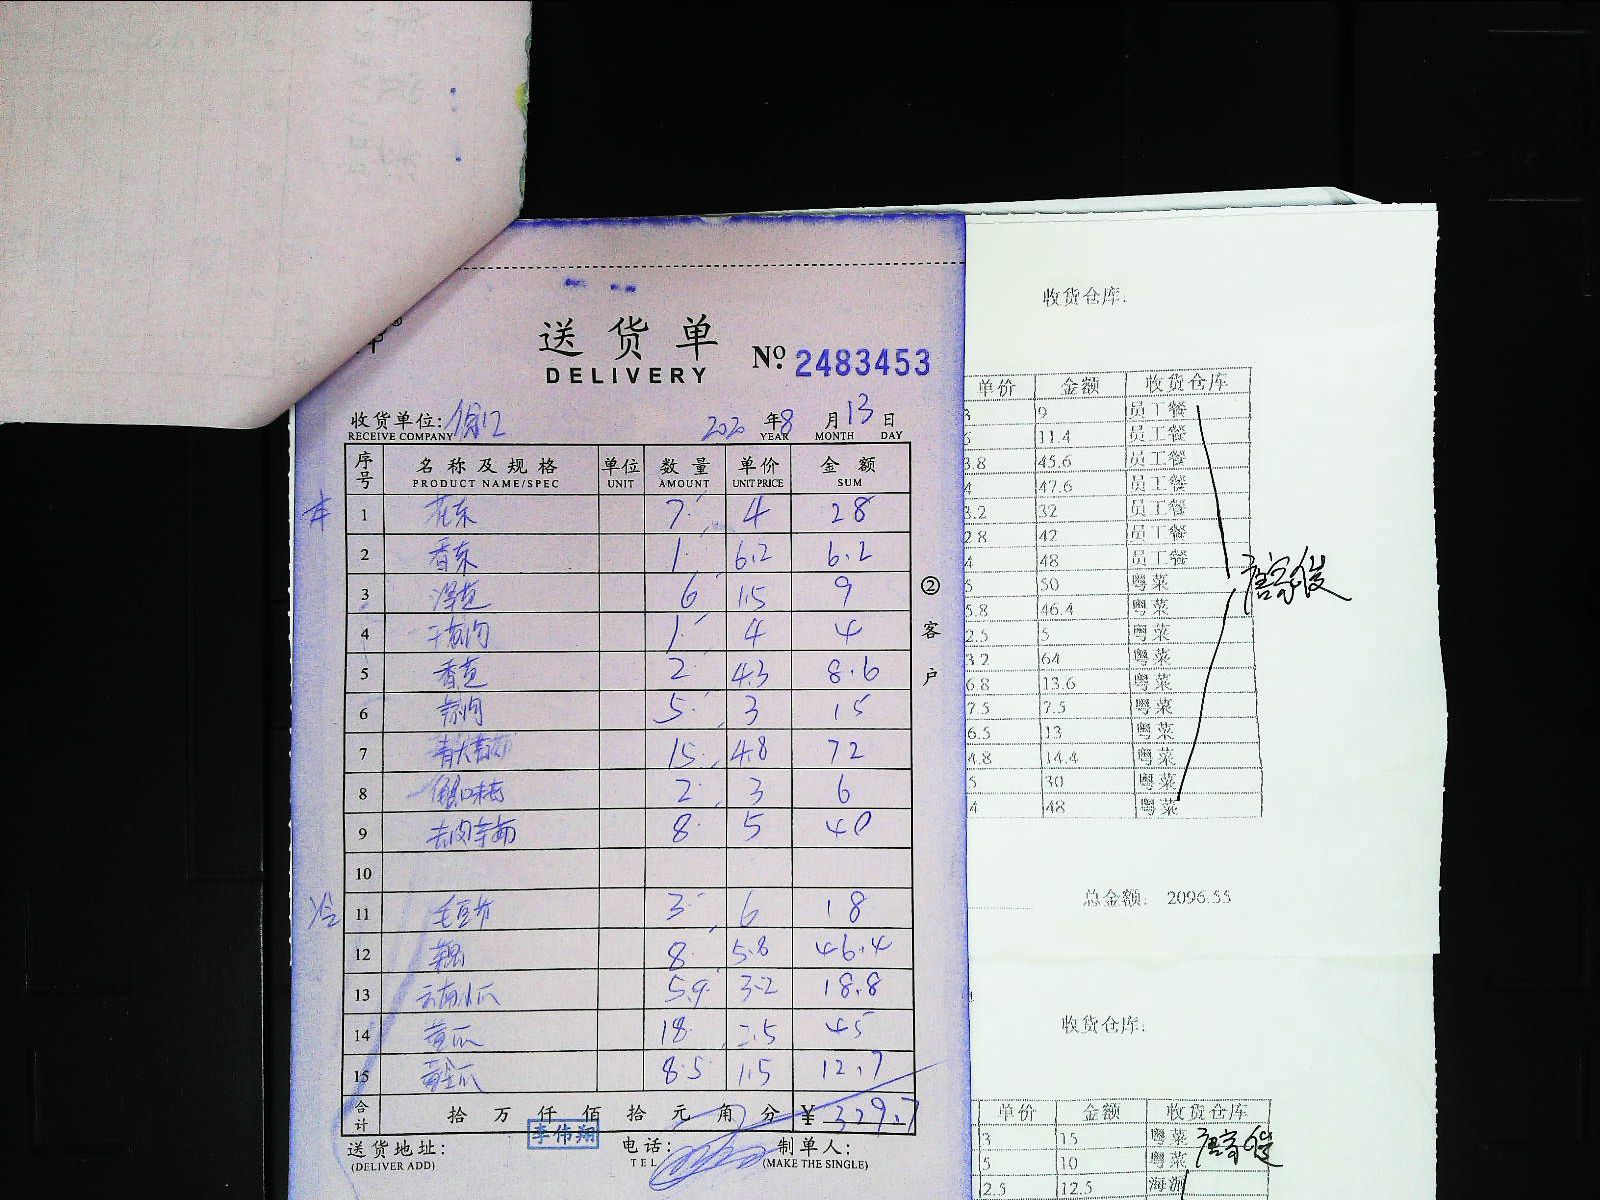 送货单
DELIVERY
№: 2483453
收货单位:
RECEIVE COMPANY
2020 年 8 月 13 日
YEAR MONTH DAY
序号 名称及规格 单位 数量 单价 金额
PRODUCT NAME/SPEC UNIT AMOUNT UNIT PRICE SUM
1 花东 7 4 28
2 香东 1 6.2 6.2
3 6 1.5 9
4 1 4 4
5 香芭 2 4.3 8.6
6 5 3 15
7 15 4.8 72
8 2 3 6
9 8 5 40
10
冷
11 毛豆节 3 6 18
12 藕 8 5.8 46.4
13 云南小瓜 5.9 3.2 18.8
14 黄瓜 18 2.5 45
15 黄金瓜 8.5 1.5 12.7
合计 拾 万 仟 佰 拾 元 角 分 ¥ 329.7
李伟翔
送货地址:
(DELIVER ADD)
电话:
TEL
制单人:
(MAKE THE SINGLE)
②客户
收货仓库:
单价 金额 收货仓库
9 员工餐
11.4 员工餐
3.8 45.6 员工餐
4 47.6 员工餐
3.2 32 员工餐
2.8 42 员工餐
4 48 员工餐
5 50 粤菜
5.8 46.4 粤菜
2.5 5 粤菜
3.2 64 粤菜
6.8 13.6 粤菜
7.5 7.5 粤菜
6.5 13 粤菜
4.8 14.4 粤菜
5 30 粤菜
4 48 粤菜
总金额: 2096.55
收货仓库:
单价 金额 收货仓库
3 15 粤菜
5 10 粤菜
2.5 12.5 海